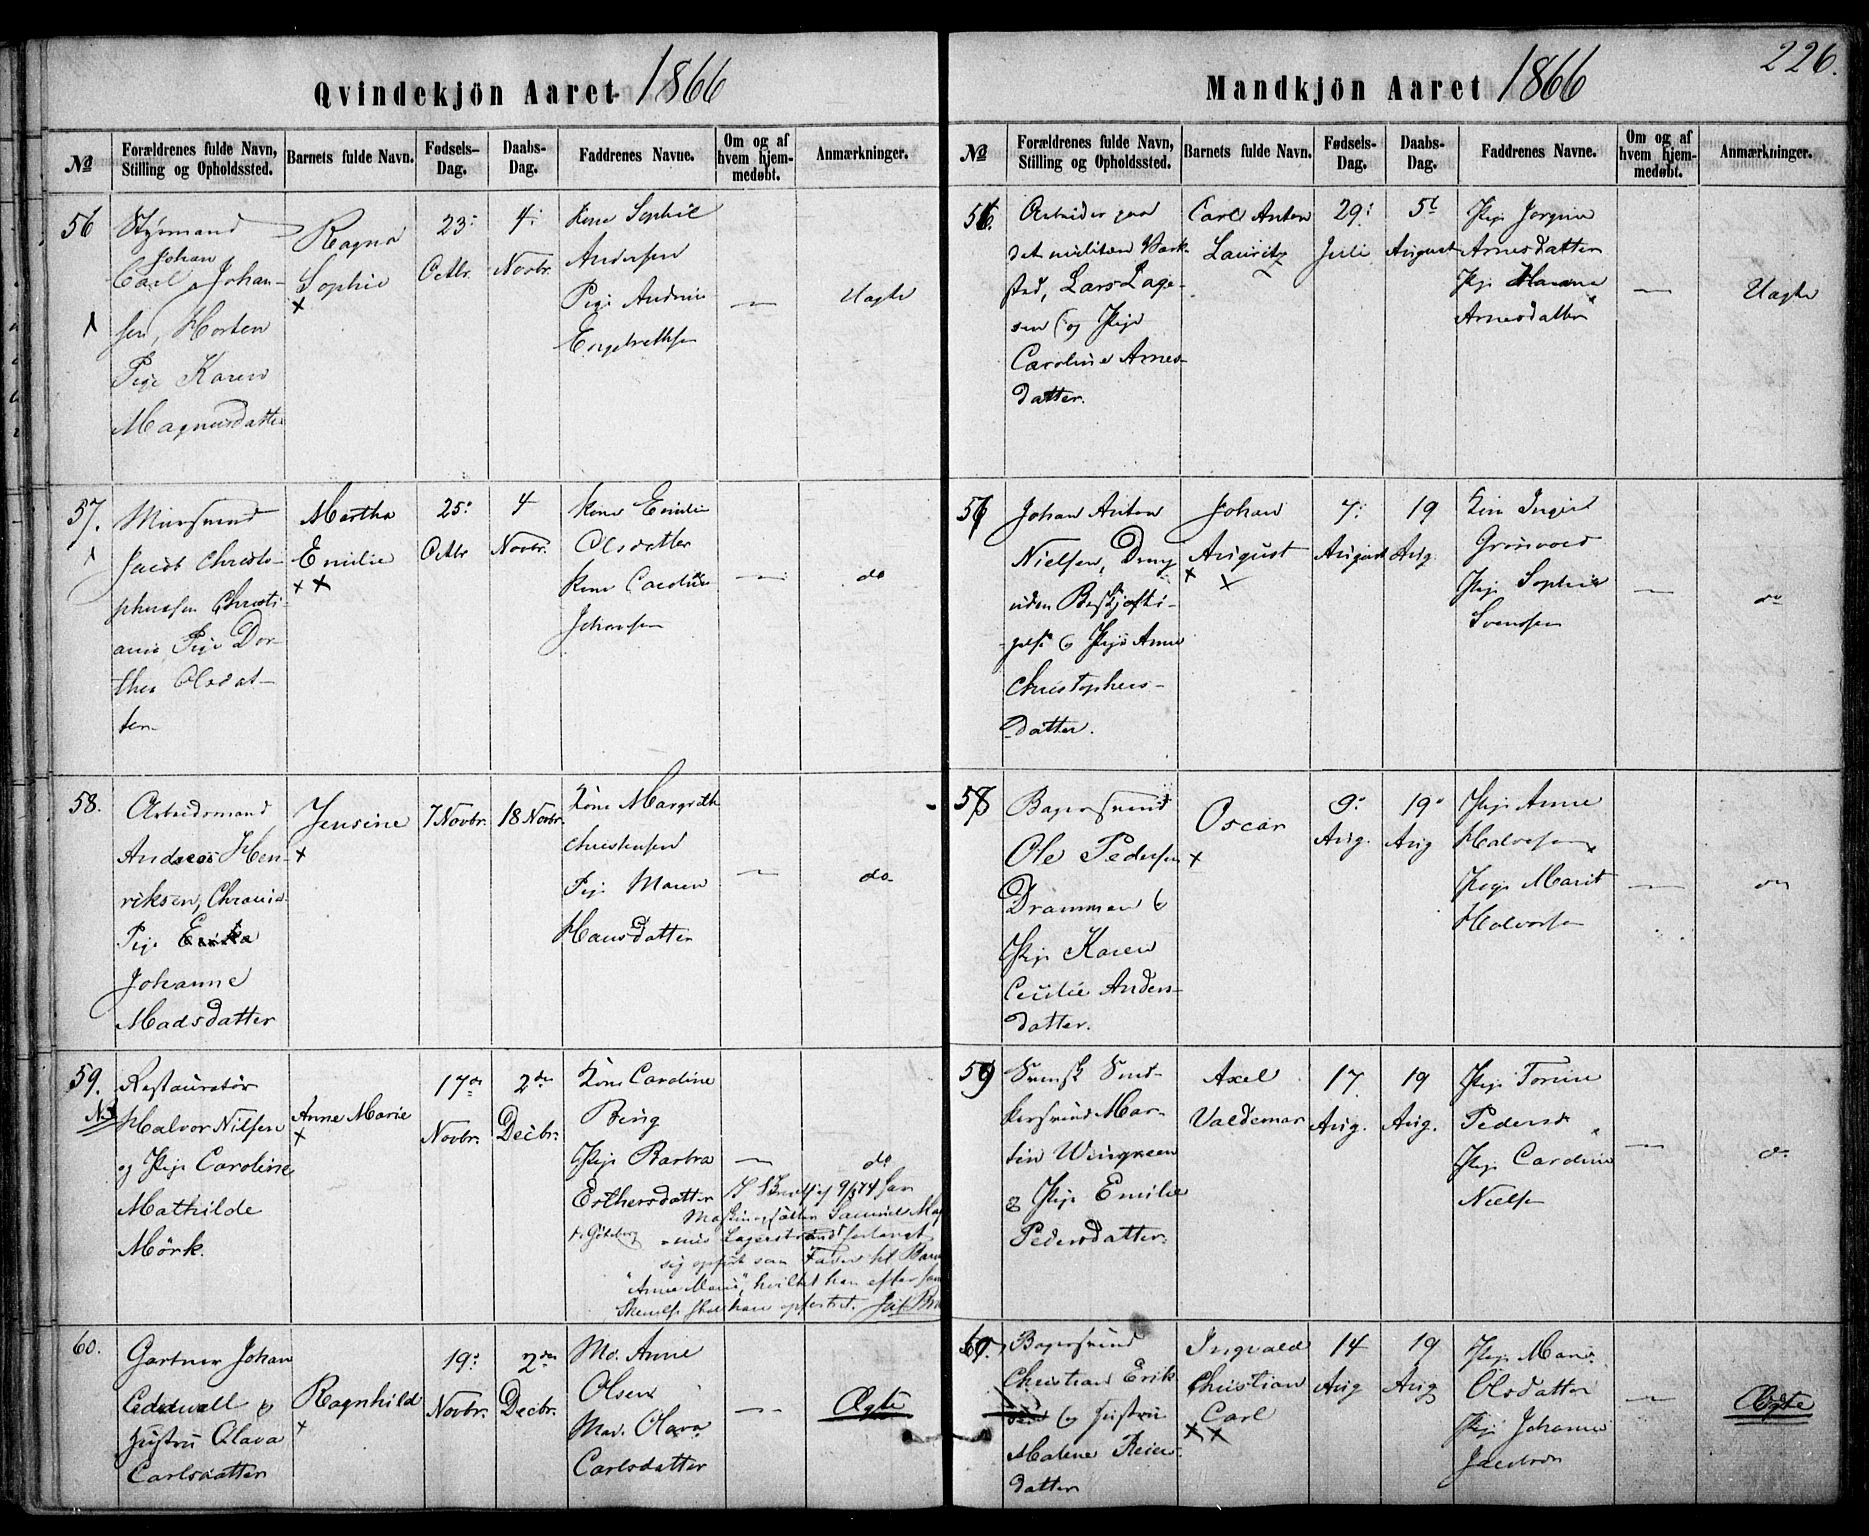 Qvindekjön Aaret 1866
№
Forældrenes fulde Navn,
Stilling og Opholdssted.
Barnets fulde Navn.
Fødsels-
Dag.
Daabs-
Dag.
Faddrenes Navne.
Om og af
hvem hjem-
medøbt.
Anmærkninger.
56
Styrmand
Johan
Carl Johan-
sen, Horten
Pige Karen
Magnusdatter
Ragna
Sophie
23
Octbr.
4
Novbr.
Kone Sophie
Andersen
Pige
Engebrethsen
—
Uægte
57.
Muursvend
Jacob Christo-
phersen Christi-
ania Pige Dor-
thea Olsdat-
ter
Martha
Emilie
25
Octbr
4
Novbr.
Kone Emilie
Olsdatter
Kone Caroline
Johansen
—
do
58.
Arbeidsmand
Andreas Hen-
riksen, Chrania
Pige
Johanne
Madsdatter
Jensine
7 Novbr.
18 Novbr.
Kone Margreth
Christensen
Pige Maren
Hansdatter
—
do
59.
Restauratør
Halvor Nilsen
og Pige Caroline
Mathilde
Mörk.
Anne Marie
17de
Novbr.
2den
Decbr.
Kone Caroline
Berg
Pige Barbra
Esthersdatter
—
do
9/3 74 har
Samuel Mag-
nus Lagerstrand forlangt
sig opført som Fader til Barnet
"Anne Marie", hvilket han efter
60.
Gartner Johan
Cederwall &
Hustru Olava
Carlsdatter
Ragnhild
19
Novbr.
2den
Decbr.
Md. Anne
Olsen
Mad. Olava
Carlsdatter
—
Ægte
Mandkjön Aaret 1866
226.
№
Forældrenes fulde Navn,
Stilling og Opholdssted.
Barnets fulde Navn.
Fødsels-
Dag.
Daabs-
Dag.
Faddrenes Navne.
Om og af
hvem hjem-
medøbt.
Anmærkninger.
56.
Arbeider paa
det militære Værk-
sted, Lars Lage-
sen & Pige
Caroline Arnes-
datter.
Carl Anton
Lauritz
29
Juli
5t
August
Pige Jorgine
Arnesdatter
Pige Hanna
Arnesdatter
—
Uægte
57
Johan Anton
Nielsen, Dreng
uden Beskjæfti-
gelse & Pige Anne
Christophers-
datter.
Johan
August
7
August
19
Aug.
Kone Inger
Grönvold
Pige Sophie
Svensen
—
do
58
Bagersvend
Ole Pedersen
Drammen &
Pige Karen
Cecilie Anders-
datter.
Oscar
9
Aug.
19
Aug
Pige Anne
Halvorsen
Pige Marit
Halvorsen
—
do
59
Svensk Sned-
kersvend Mar-
tin Wingreen
& Pige Emilie
Pedersdatter
Axel
Valdemar
17
Aug.
19
Aug.
Pige Torine
Pedersd
Pige Caroline
Nielsen
—
do
60.
Bagersvend
Christian Erik-
sen & Hustru
Malene Reiers-
datter
Ingvald
Christian
Carl
14
Aug
19
Aug
Pige Mari
Olsdatter
Pige Johanne
Jacobsen
—
Ægte